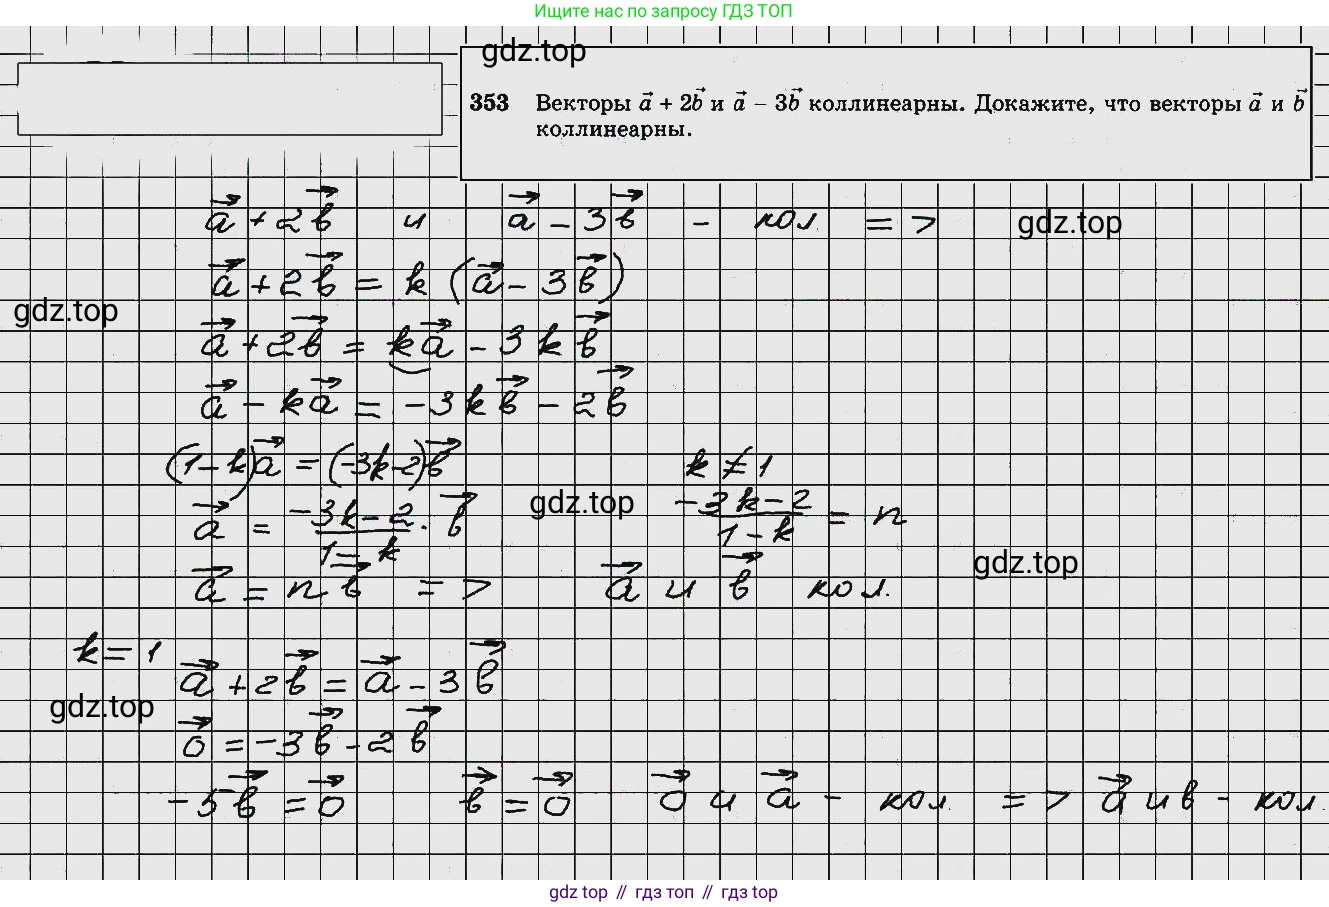 Ищите нас по запросу ГДЗ ТОП
gdz.top
353 Векторы a⃗ + 2b⃗ и a⃗ – 3b⃗ коллинеарны. Докажите, что векторы a⃗ и b⃗
коллинеарны.
a⃗ + 2b⃗ и a⃗ – 3b⃗ – кол =>
gdz.top
a⃗ + 2b⃗ = k (a⃗ – 3b⃗)
gdz.top
a⃗ + 2b⃗ = ka⃗ – 3kb⃗
a⃗ – ka⃗ = –3kb⃗ – 2b⃗
(1–k)a⃗ = (–3k–2)b⃗ k ≠ 1
gdz.top
a⃗ = (–3k–2)/(1–k) · b⃗ (–3k–2)/(1–k) = n
gdz.top
a⃗ = nb⃗ => a⃗ и b⃗ кол.
k = 1
a⃗ + 2b⃗ = a⃗ – 3b⃗
gdz.top
0⃗ = –3b⃗ – 2b⃗
–5b⃗ = 0⃗ b⃗ = 0⃗ 0⃗ и a⃗ – кол. => a⃗ и b – кол.
gdz top // гдз топ // гдз top